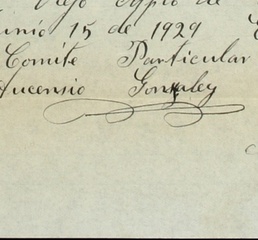 Viejo Egipto de
unio 15 de 1929
Comité Particular
ucensio Gonzaley